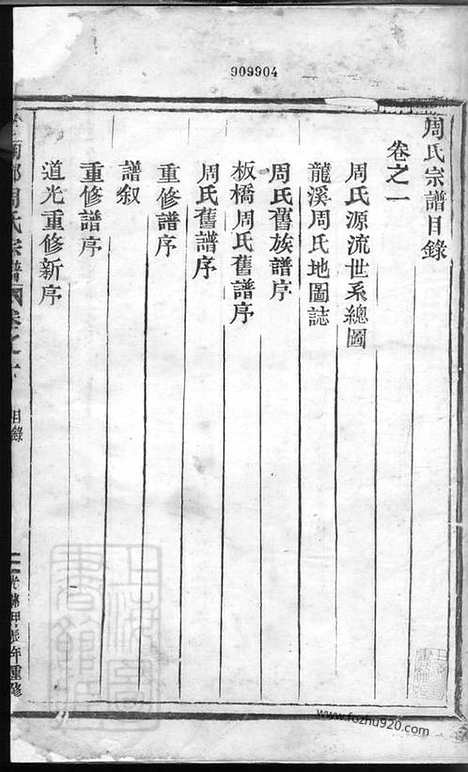 909904
周氏宗譜目錄
卷之一
周氏源流世系總圖
龍溪周氏地圖誌
周氏舊族譜序
板橋周氏舊譜序
周氏舊譜序
重修譜序
譜叙
重修譜序
道光重修新序
周氏宗譜
卷之
目錄
年重修
www.fozhu920.com